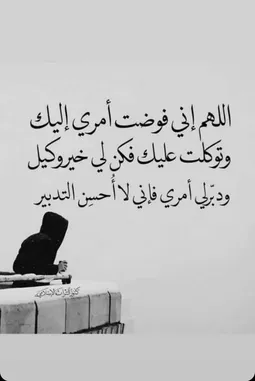 اللهم إني فوضت أمري إليك
وتوكلت عليك فكن لي خير وكيل
ودبّر لي أمري فإني لا أُحسِن التدبير